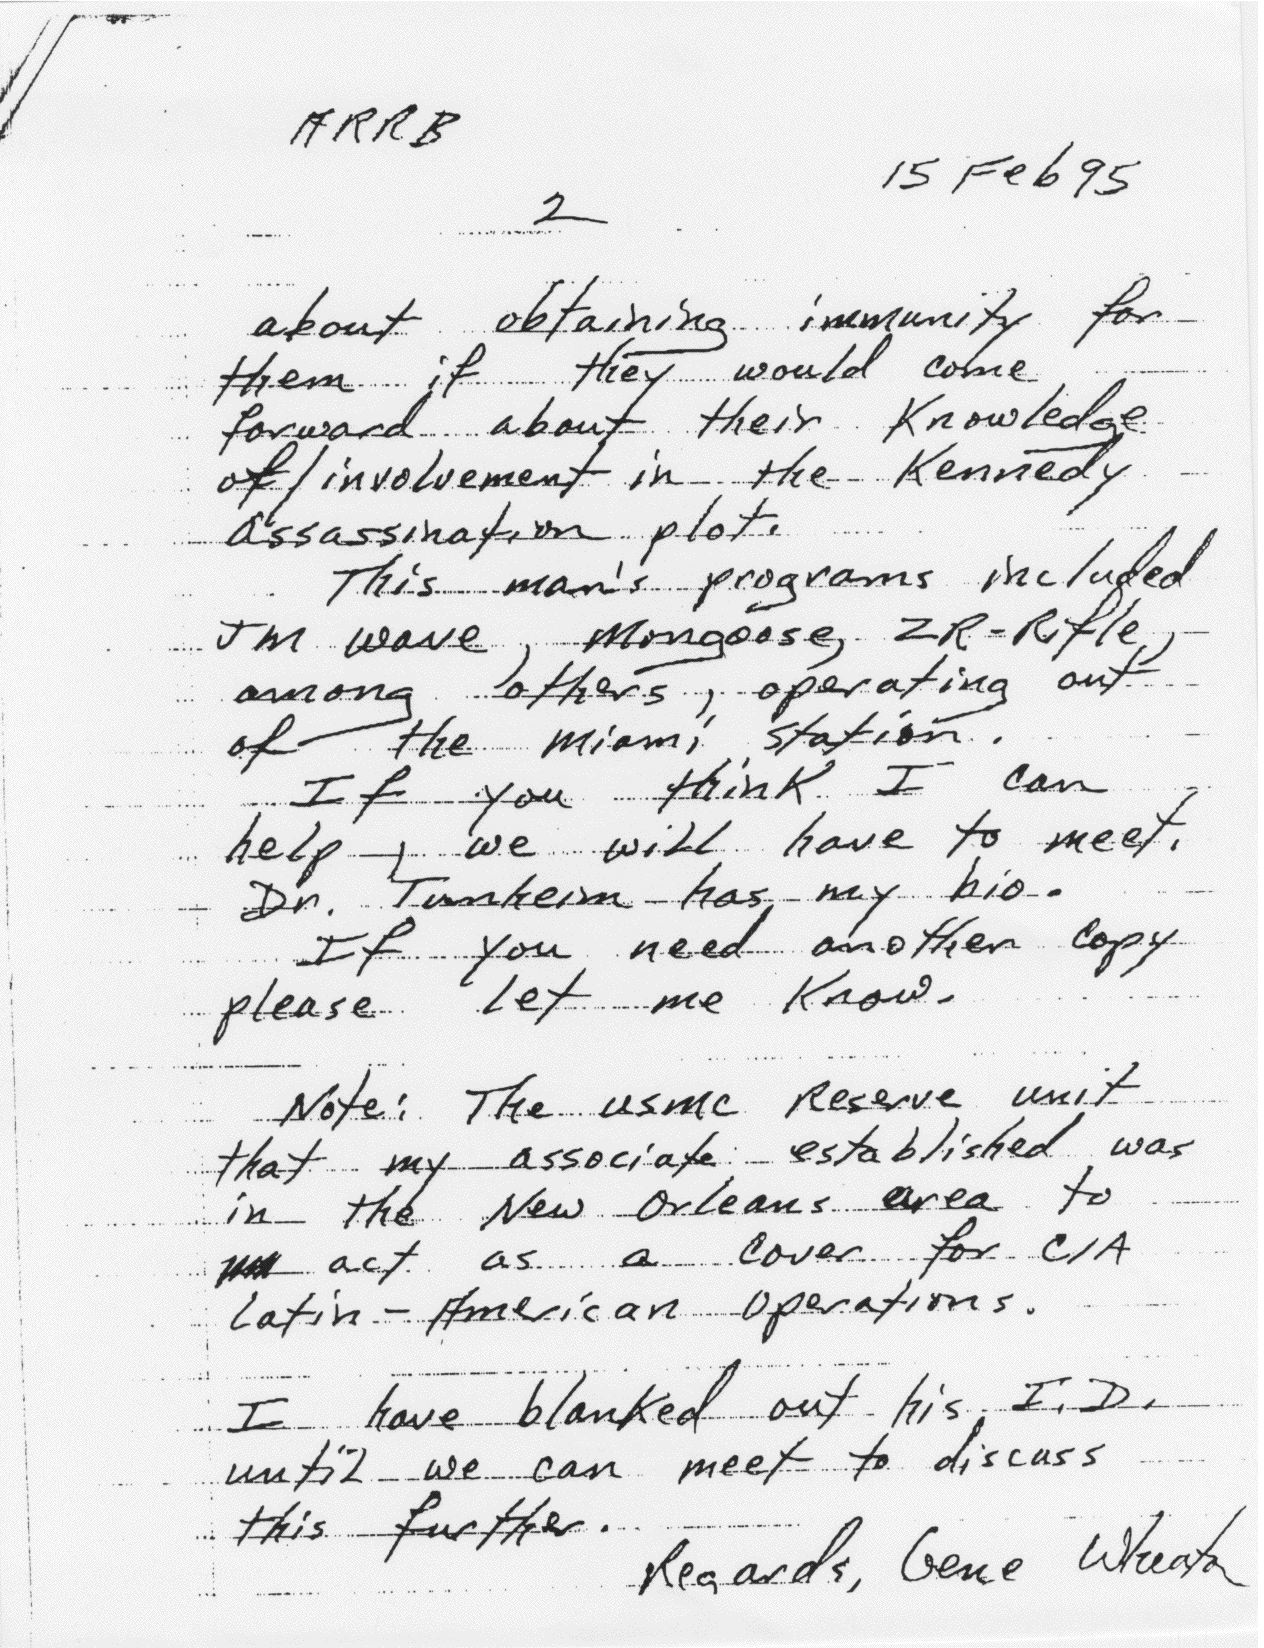 ARRB
15 Feb 95
2
about obtaining immunity for
them if they would come
forward about their Knowledge
of/involvement in the Kennedy
assassination plot.
This man's programs included
JM wave, Mongoose, ZR-Rifle,
among others, operating out
of the Miami station.
If you think I can
help, we will have to meet.
Dr. Tunheim has my bio.
If you need another copy
please let me Know.
Note: The USMC Reserve unit
that my associate established was
in the New Orleans area to
act as a cover for CIA
Latin-American Operations.
I have blanked out his I.D.
until we can meet to discuss
this further.
Regards, Gene Wheaton